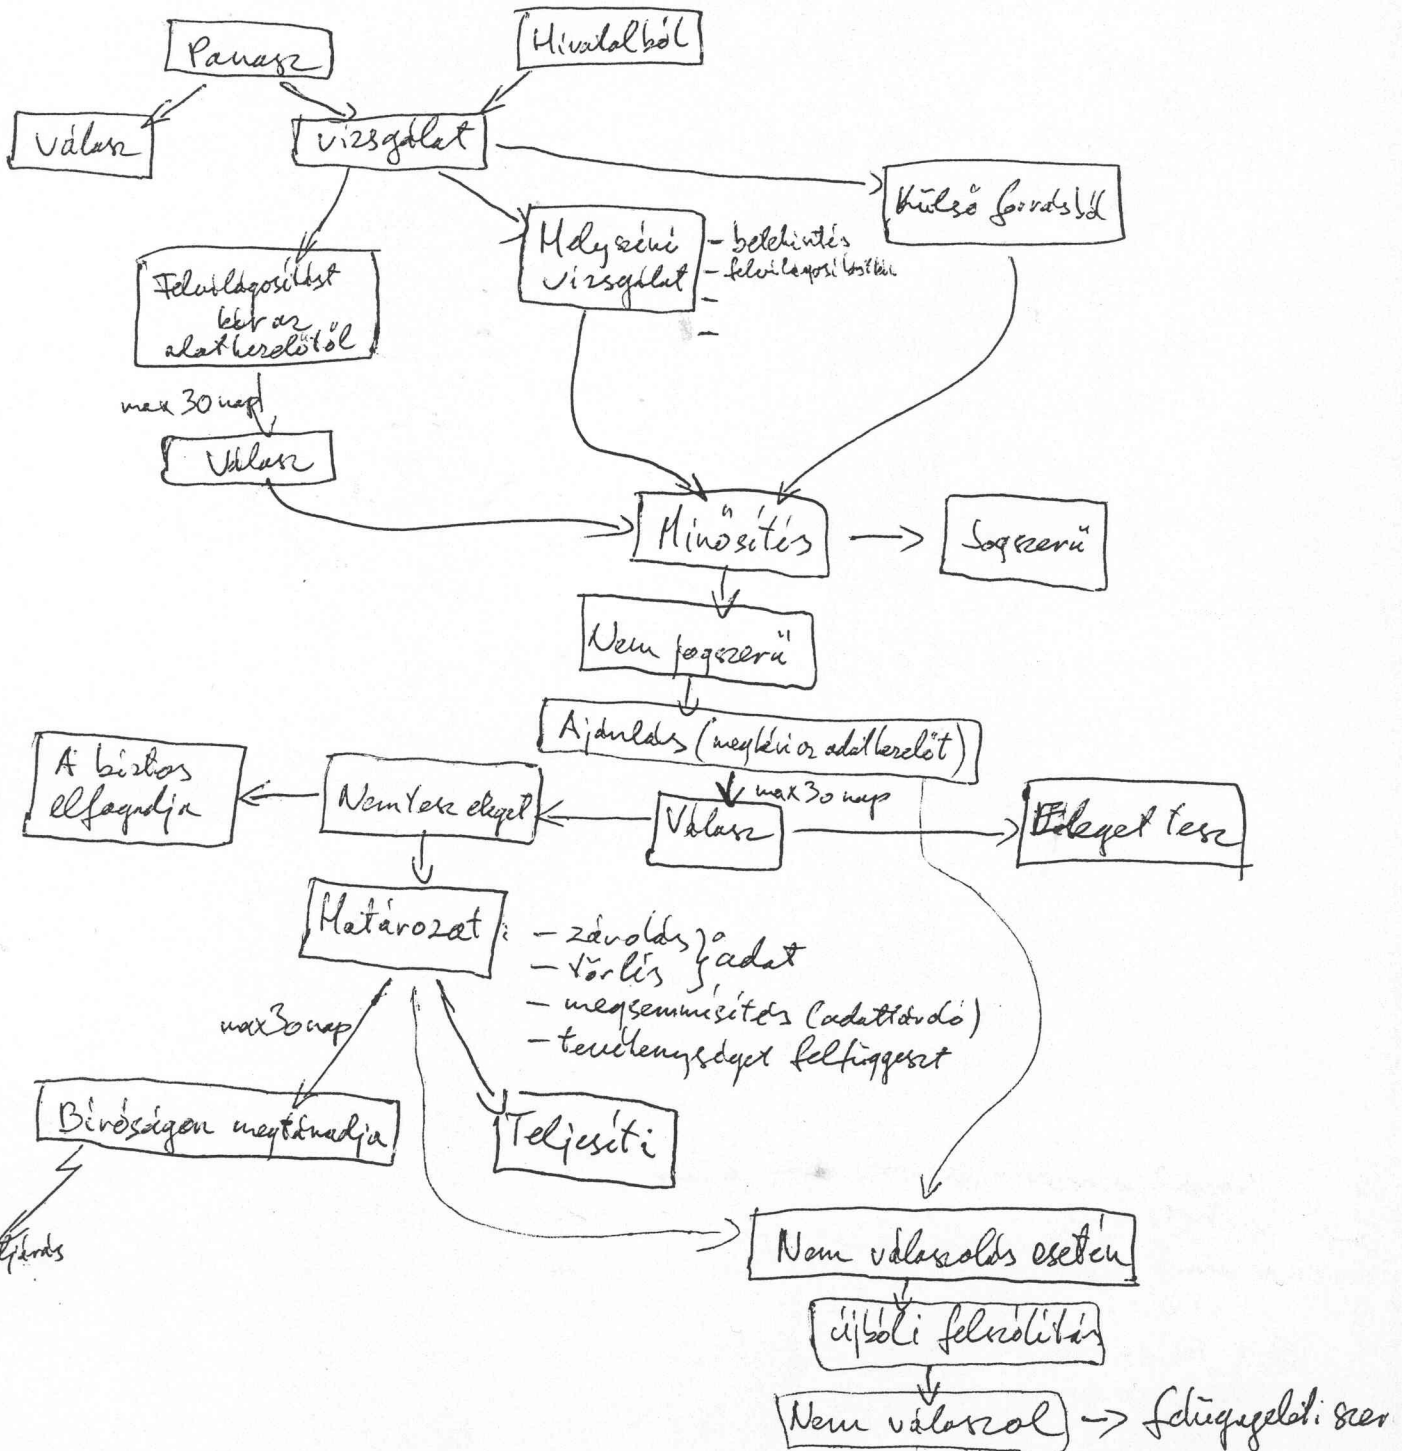 Panasz
Hivatalból
Válasz
vizsgálat
Külső forrásból
Helyszíni
vizsgálat
- betekintés
- felvilágosítás
-
-
Felvilágosítást
kér az
adatkezelőtől
max 30 nap
Válasz
Minősítés
Jogszerű
Nem jogszerű
Ajánlás (megkéri az adatkezelőt)
max 30 nap
A biztos
elfogadja
Nem tesz eleget
Válasz
Eleget tesz
Határozat:
- zárolás } adat
- törlés
- megsemmisítés (adathordó)
- tevékenységet felfüggeszt
max 30 nap
Bíróságon megtámadja
Teljesíti
Nem válaszolás esetén
újbóli felszólítás
Nem válaszol -> felügyeleti szer